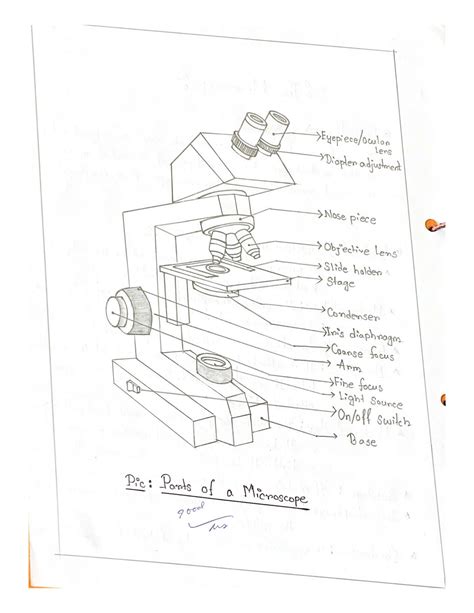 Eyepiece/Ocular
Lens
Diopter adjustment
Nose piece
Objective Lens
Slide holder
Stage
Condenser
Iris diaphragm
Coarse focus
Arm
Fine focus
Light Source
On/off Switch
Base
Pic: Parts of a Microscope
good